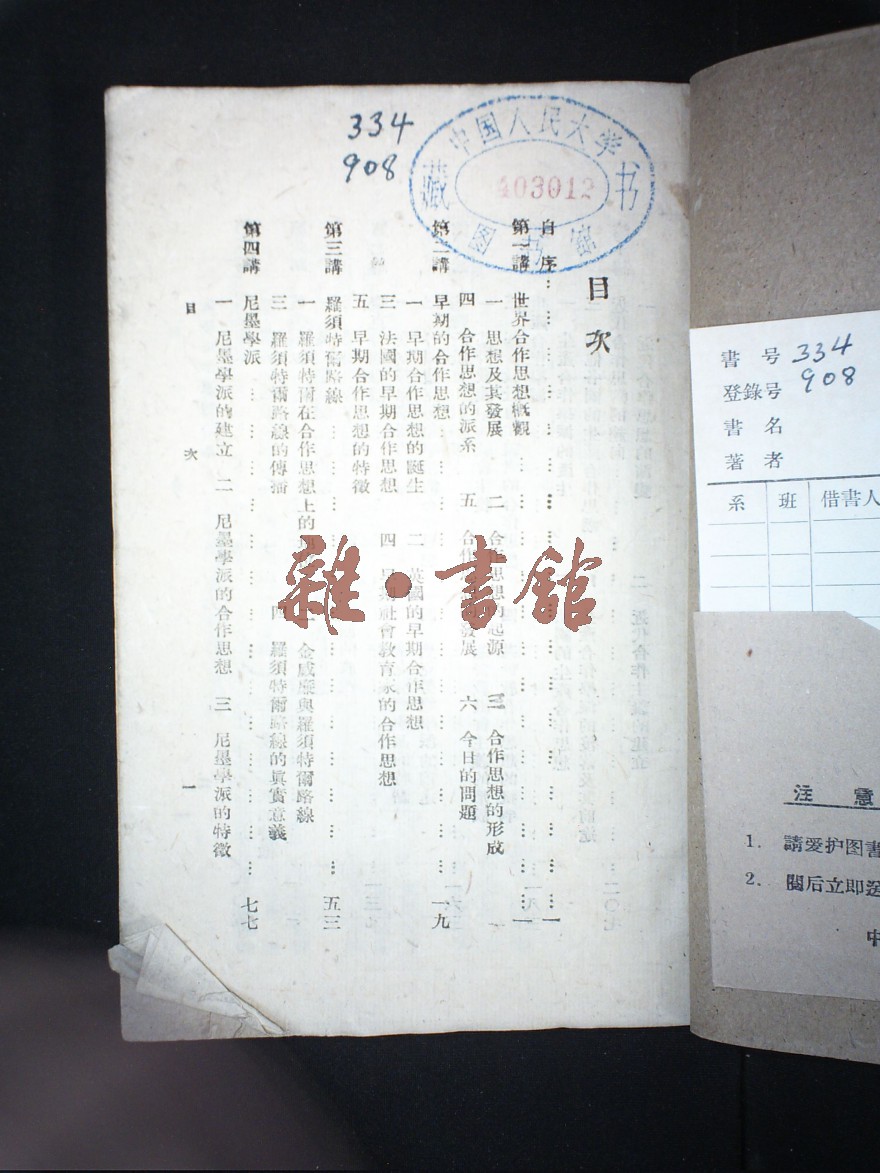 334
908
中国人民大学
藏书
图书馆
403012
目次
自序⋯⋯⋯⋯⋯⋯一
第一講 世界合作思想概觀⋯⋯⋯⋯⋯⋯一
一 思想及其發展 二 合作思想的起源 三 合作思想的形成
四 合作思想的派系 五 合作 發展 六 今日的問題
第二講 早期的合作思想⋯⋯⋯⋯⋯⋯一九
一 早期合作思想的誕生 二 英國的早期合作思想
三 法國的早期合作思想 四 早期社會教育家的合作思想
五 早期合作思想的特徵
第三講 羅須特爾路線⋯⋯⋯⋯⋯⋯五三
一 羅須特爾在合作思想上的 二 金威廉與羅須特爾路線
三 羅須特爾路線的傳播 四 羅須特爾路線的眞實意義
第四講 尼墨學派⋯⋯⋯⋯⋯⋯七七
一 尼墨學派的建立 二 尼墨學派的合作思想 三 尼墨學派的特徵
目次 一
雜·書館
書号 334
登錄号 908
書名
著者
系 班 借書人
注意
1. 請爱护图書
2. 閱后立即送
中